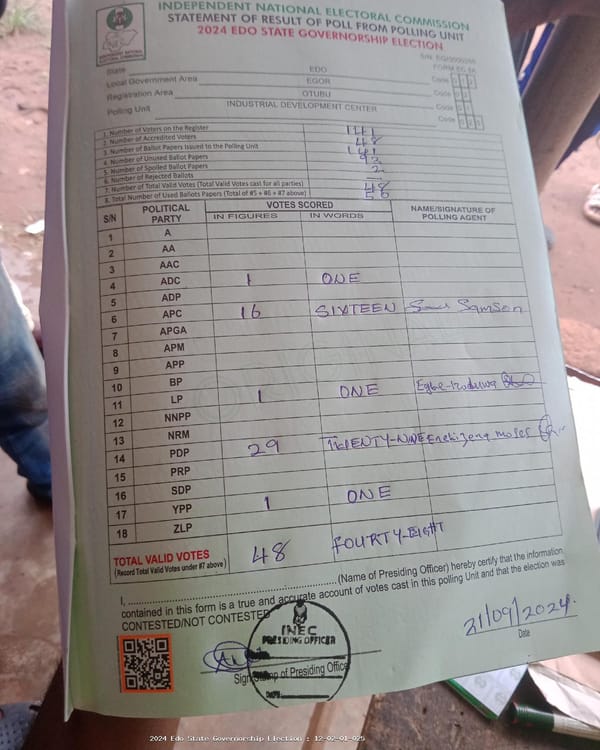 INDEPENDENT NATIONAL ELECTORAL COMMISSION
STATEMENT OF RESULT OF POLL FROM POLLING UNIT
2024 EDO STATE GOVERNORSHIP ELECTION
FORM EC 8A
State EDO Code
Local Government Area EGOR Code
Registration Area OTUBU Code
Polling Unit INDUSTRIAL DEVELOPMENT CENTER Code
1. Number of Voters on the Register 141
2. Number of Accredited Voters 48
3. Number of Ballot Papers Issued to the Polling Unit 141
4. Number of Unused Ballot Papers 93
5. Number of Spoiled Ballot Papers 2
6. Number of Rejected Ballots -
7. Number of Total Valid Votes (Total Valid Votes cast for all parties) 48
8. Total Number of Used Ballots Papers (Total of #5 + #6 + #7 above) 50
S/N POLITICAL PARTY VOTES SCORED NAME/SIGNATURE OF POLLING AGENT
IN FIGURES IN WORDS
1 A
2 AA
3 AAC
4 ADC 1 ONE
5 ADP
6 APC 16 SIXTEEN Samson
7 APGA
8 APM
9 APP
10 BP
11 LP 1 ONE
12 NNPP
13 NRM
14 PDP 29 TWENTY-NINE moses
15 PRP
16 SDP
17 YPP 1 ONE
18 ZLP
TOTAL VALID VOTES 48 FOURTY-EIGHT
(Record Total Valid Votes under #7 above)
I, (Name of Presiding Officer) hereby certify that the information
contained in this form is a true and accurate account of votes cast in this polling Unit and that the election was
CONTESTED/NOT CONTESTED
INEC
PRESIDING OFFICER
21/09/2024.
Date
Sign Stamp of Presiding Officer
DATE
2024 Edo State Governorship Election : 12-02-01-025